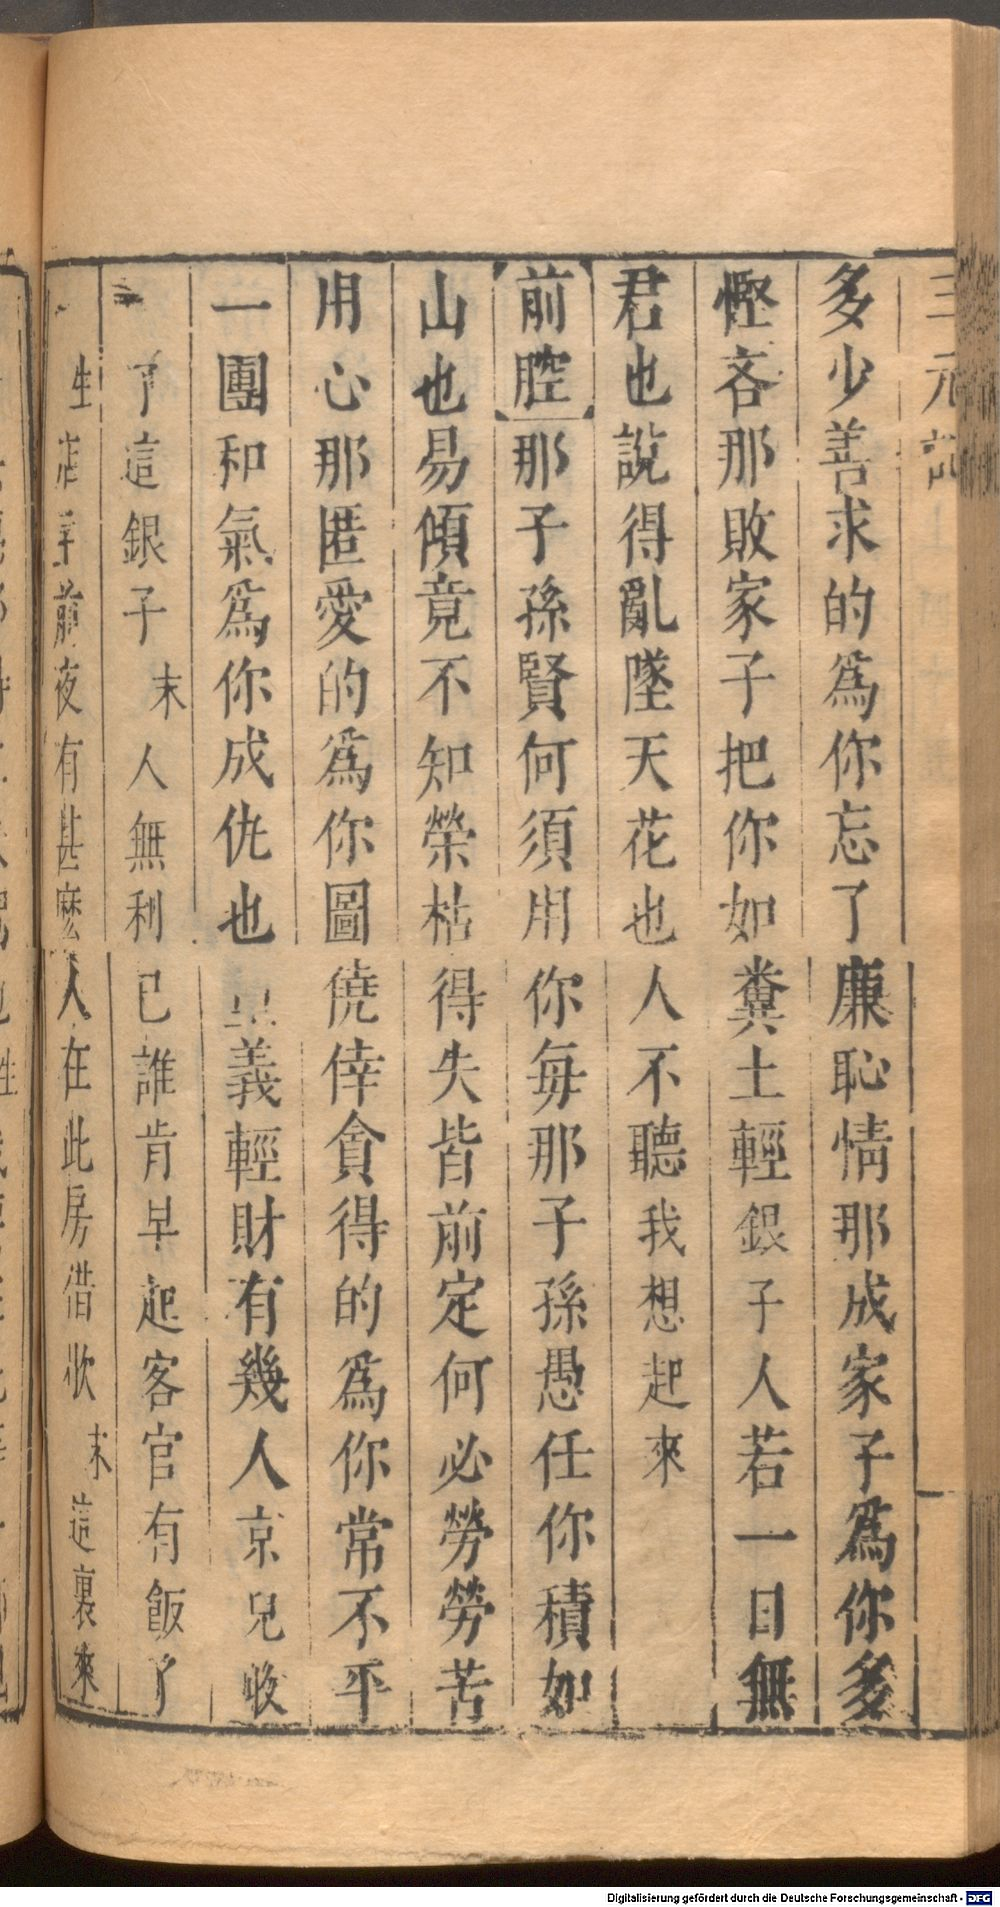 三元記
多少善求的爲你忘了廉恥情那成家子爲你多
慳吝那敗家子把你如糞土輕銀子人若一日無
君也說得亂墜天花也人不聽我想起來
前腔那子孫賢何須用你每那子孫愚任你積如
山也易傾竟不知榮枯得失皆前定何必勞勞苦
用心那匿愛的爲你圖僥倖貪得的爲你常不平
一團和氣爲你成仇也義輕財有幾人京兒收
了這銀子末人無利已誰肯早起客官有飯了
生店前夜有甚麽人在此房借歇末這裏來
Digitalisierung gefördert durch die Deutsche Forschungsgemeinschaft - DFG